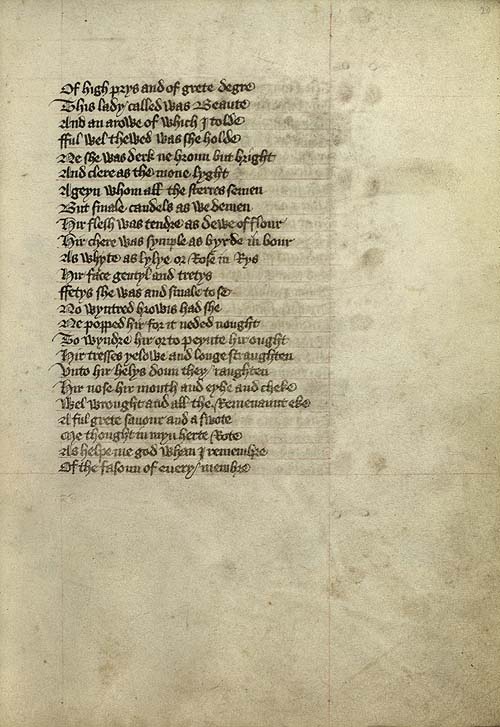 Of high prys and of grete degre
This lady called was Beaute
And an arowe of which I tolde
fful wel thewed was she holde
Ne she was derk ne broun but bright
And clere as the mone lyght
Ageyn whom all the sterres semen
But smale candels as we demen
Hir flesh was tendre as dewe of flour
Hir chere was symple as byrde in bour
As whyte as lylye or Rose in Rys
Hir face gentyl and tretys
ffetys she was and smale to se
No wyntred browis had she
Ne popped hir for it neded nought
To wyndre hir or to peynte hir ought
Hir tresses yelowe and longe straughten
Vnto hir helys doun they raughten
Hir nose hir mouth and eyhe and cheke
Wel wrought and all the Remenaunt eke
A ful grete sauour and a swote
Me thought in myn herte Rote
As helpe me god whan I remembre
Of the fasoun of euery membre